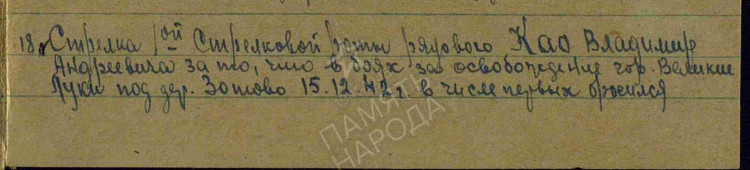 18. Стрелка 1ой Стрелковой роты рядового Као Владимир
Андреевича за то, что в боях за освобождение гор. Великие
Луки под дер. Зотово 15.12.42г. в числе первых бросился
ПАМЯТЬ
НАРОДА